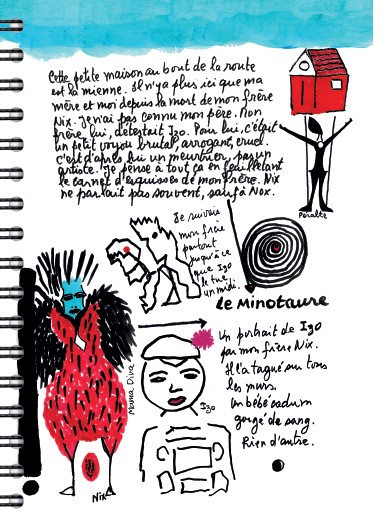 Cette petite maison au bout de la route
est la mienne. Il n'y a plus ici que ma
mère et moi depuis la mort de mon frère
Nix. Je n'ai pas connu mon père. Mon
frère, lui, détestait Igo. Pour lui, c'était
un petit voyou brutal, arrogant, cruel.
C'est d'après lui un meurtrier, pas un
artiste. Je pense à tout ça en feuilletant
le carnet d'esquisses de mon frère. Nix
ne parlait pas souvent, sauf à Nox.
Peralta
Je suivais
mon frère
partout
jusqu'à ce
que Igo
le tue,
un midi.
le Minotaure
Un portrait de Igo
par mon frère Nix.
Il l'a tagué sur tous
les murs.
Un bébé sadum
gorgé de sang.
Rien d'autre.
Mama Diva
Igo
Nix